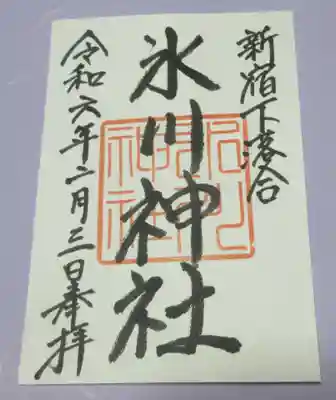 新宿下落合
氷川神社
令和六年二月三日奉拝
氷川
神社